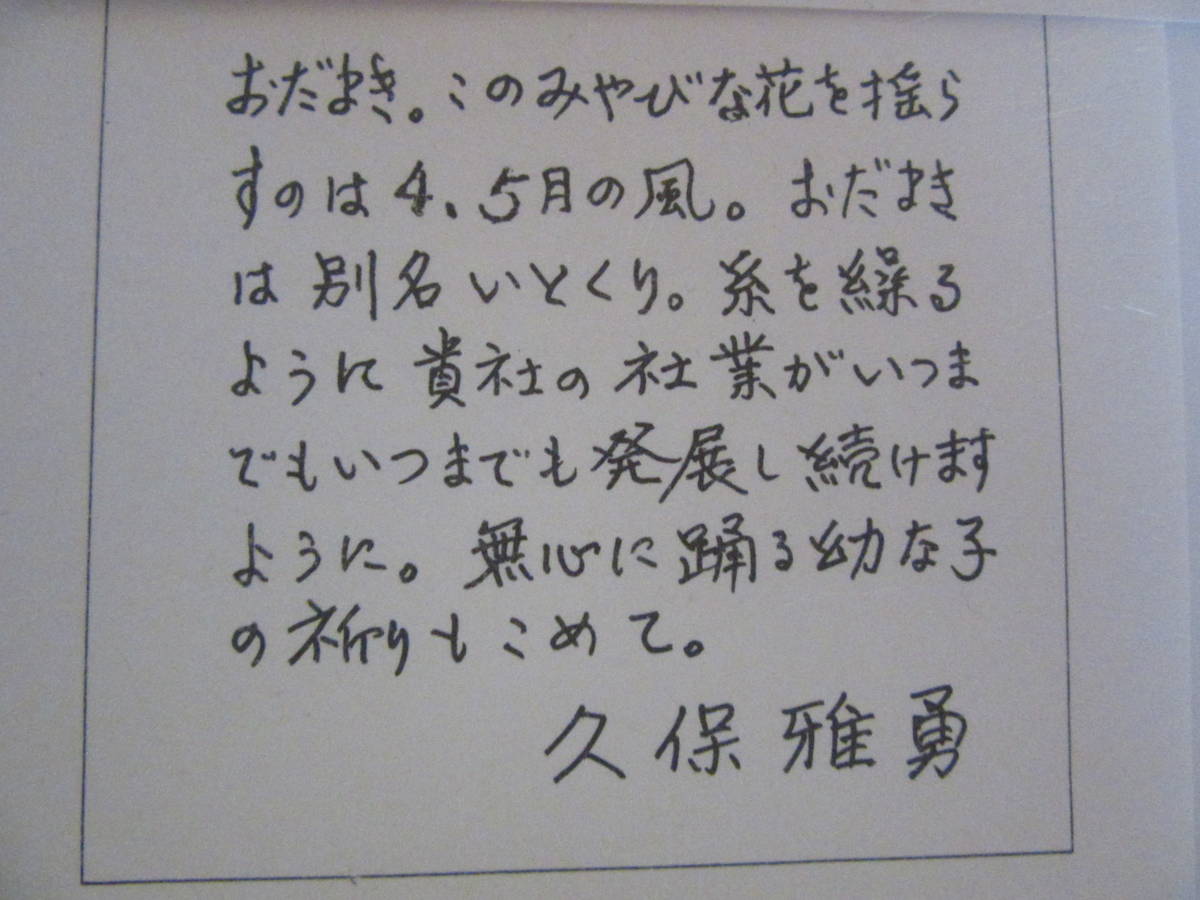 おだまき。このみやびな花を揺ら
すのは4、5月の風。おだまき
は別名いとくり。糸を繰る
ように貴社の社業がいつま
でもいつまでも発展し続けます
ように。無心に踊る幼な子
の祈りもこめて。
久保雅勇